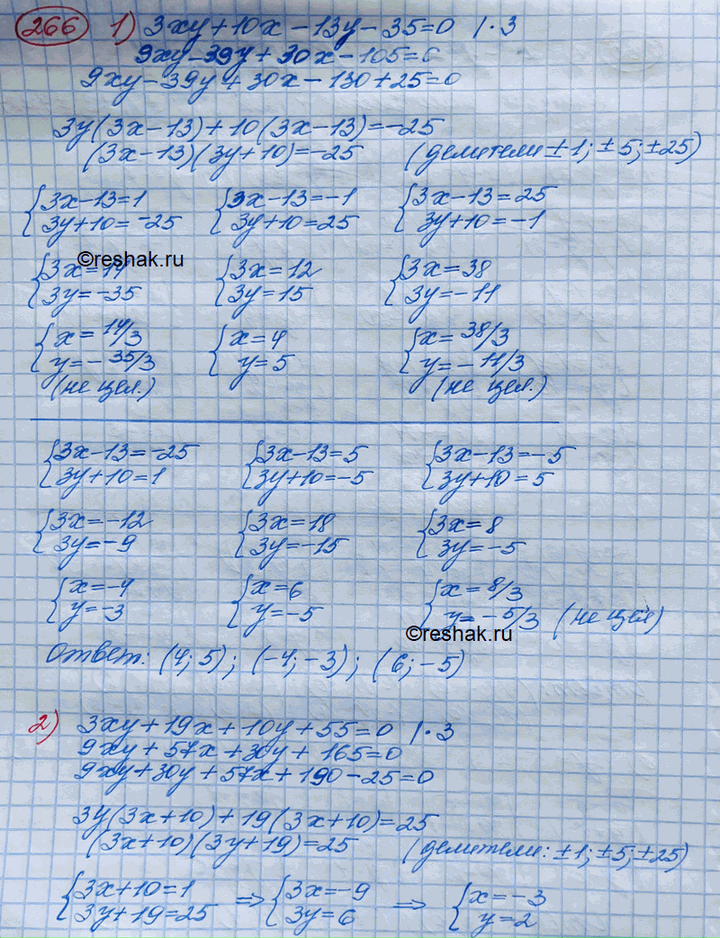 266 1) 3xy+10x-13y-35=0 | ·3
9xy-39y+30x-105=0
9xy-39y+30x-130+25=0
3y(3x-13)+10(3x-13)=-25
(3x-13)(3y+10)=-25 (делители ±1; ±5; ±25)
{3x-13=1 {3x-13=-1 {3x-13=25
{3y+10=-25 {3y+10=25 {3y+10=-1
©reshak.ru
{3x=14 {3x=12 {3x=38
{3y=-35 {3y=15 {3y=-11
{x=14/3 {x=4 {x=38/3
{y=-35/3 {y=5 {y=-11/3
(не цел.) (не цел.)
{3x-13=-25 {3x-13=5 {3x-13=-5
{3y+10=1 {3y+10=-5 {3y+10=5
{3x=-12 {3x=18 {3x=8
{3y=-9 {3y=-15 {3y=-5
{x=-4 {x=6 {x=8/3
{y=-3 {y=-5 {y=-5/3 (не цел)
©reshak.ru
Ответ: (4; 5); (-4; -3); (6; -5)
2) 3xy+19x+10y+55=0 | ·3
9xy+57x+30y+165=0
9xy+30y+57x+190-25=0
3y(3x+10)+19(3x+10)=25
(3x+10)(3y+19)=25 (делители: ±1; ±5; ±25)
{3x+10=1 => {3x=-9 => {x=-3
{3y+19=25 {3y=6 {y=2